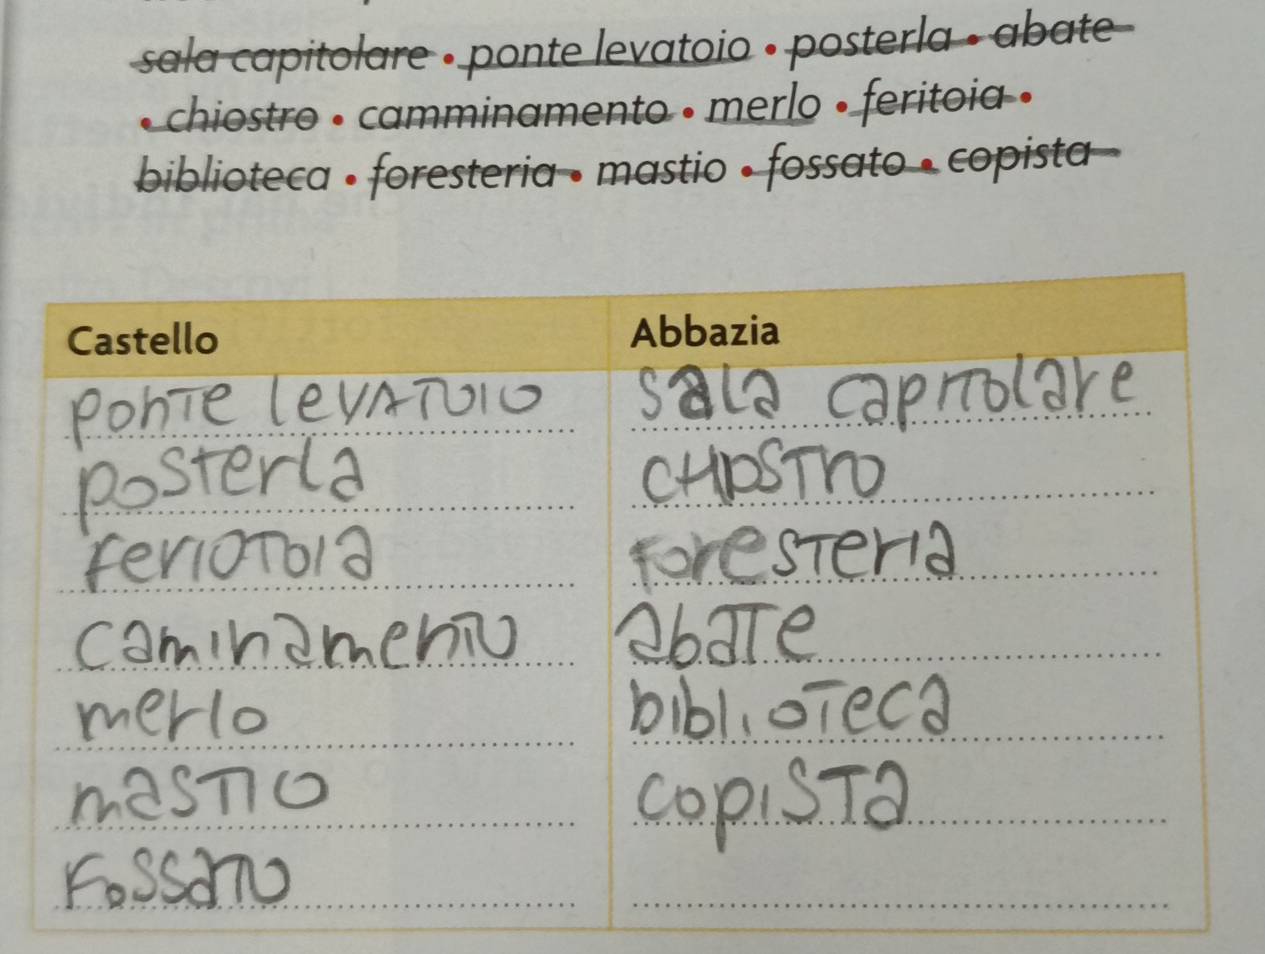 sala capitolare • ponte levatoio • posterla • abate
• chiostro • camminamento • merlo • feritoia •
biblioteca • foresteria • mastio • fossato • copista
Castello Abbazia
ponte levatoio sala capitolare
posterla chiostro
feriotoia foresteria
caminamento abate
merlo biblioteca
mastio copista
fossato